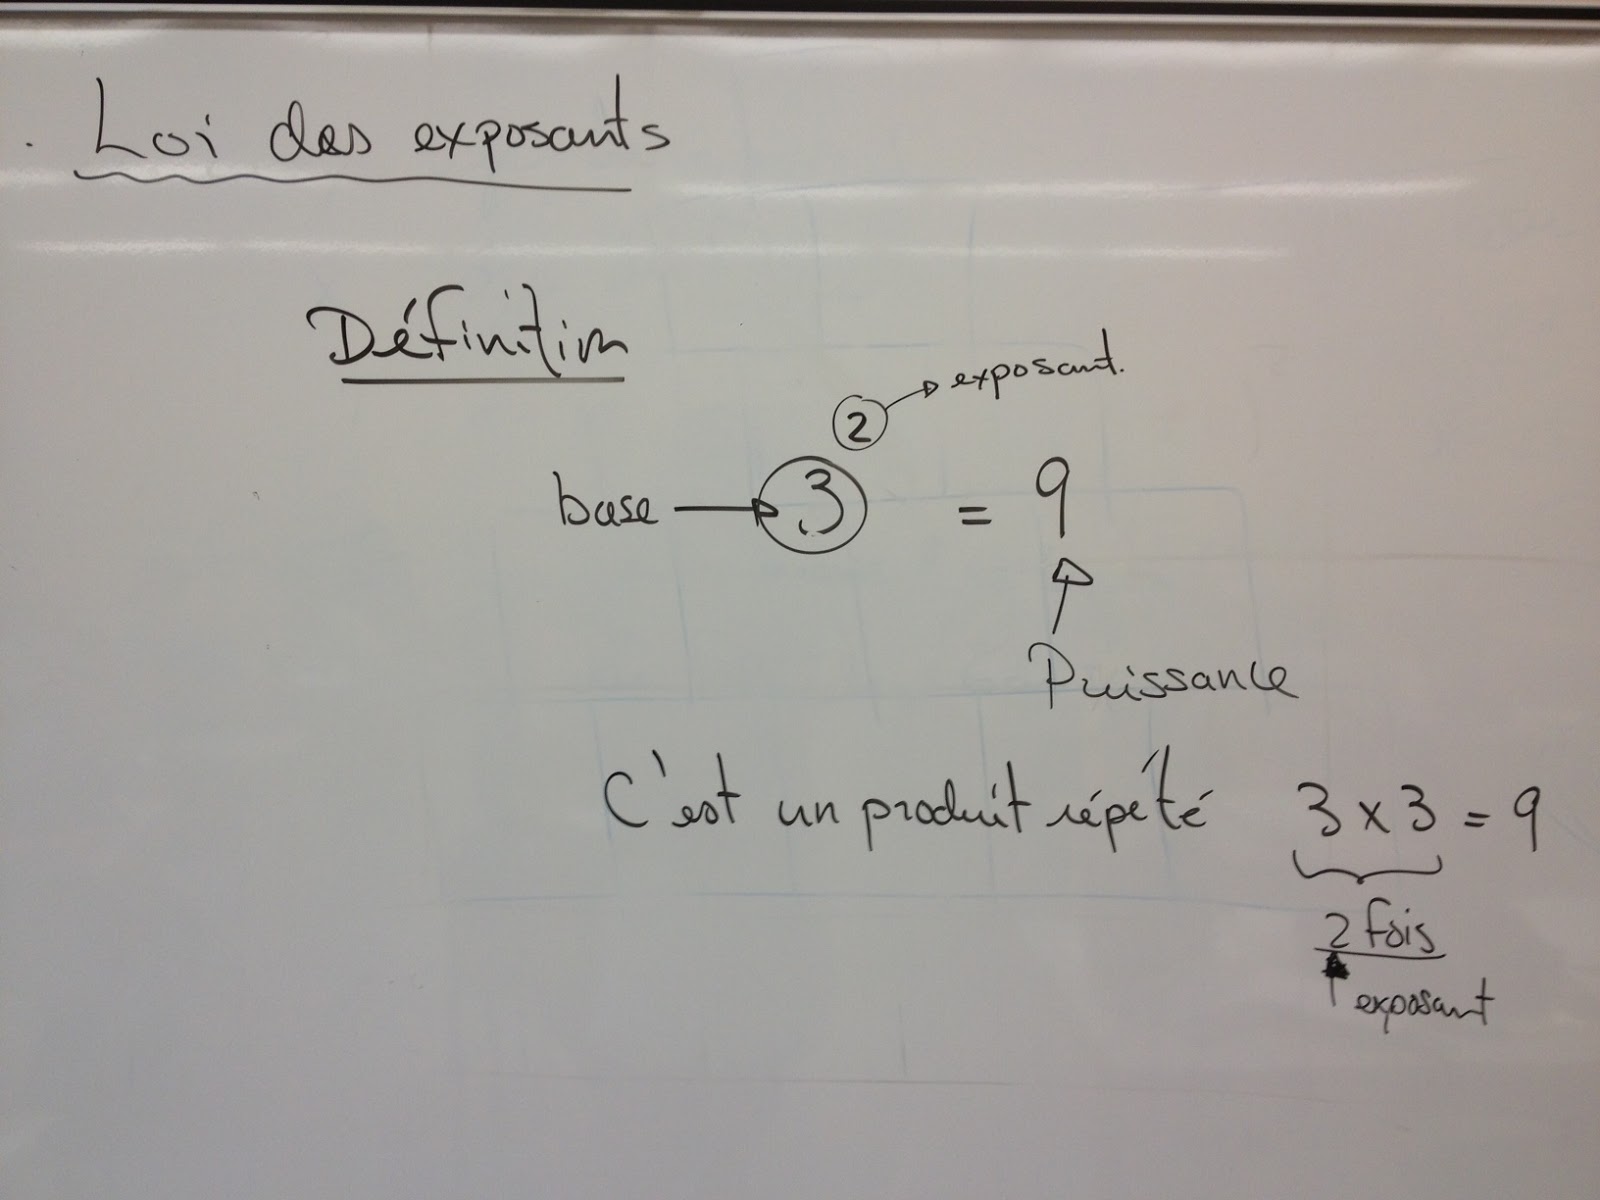 Loi des exposants
Définition
2 → exposant.
base → 3 = 9
Puissance
C'est un produit répété 3 x 3 = 9
2 fois
exposant